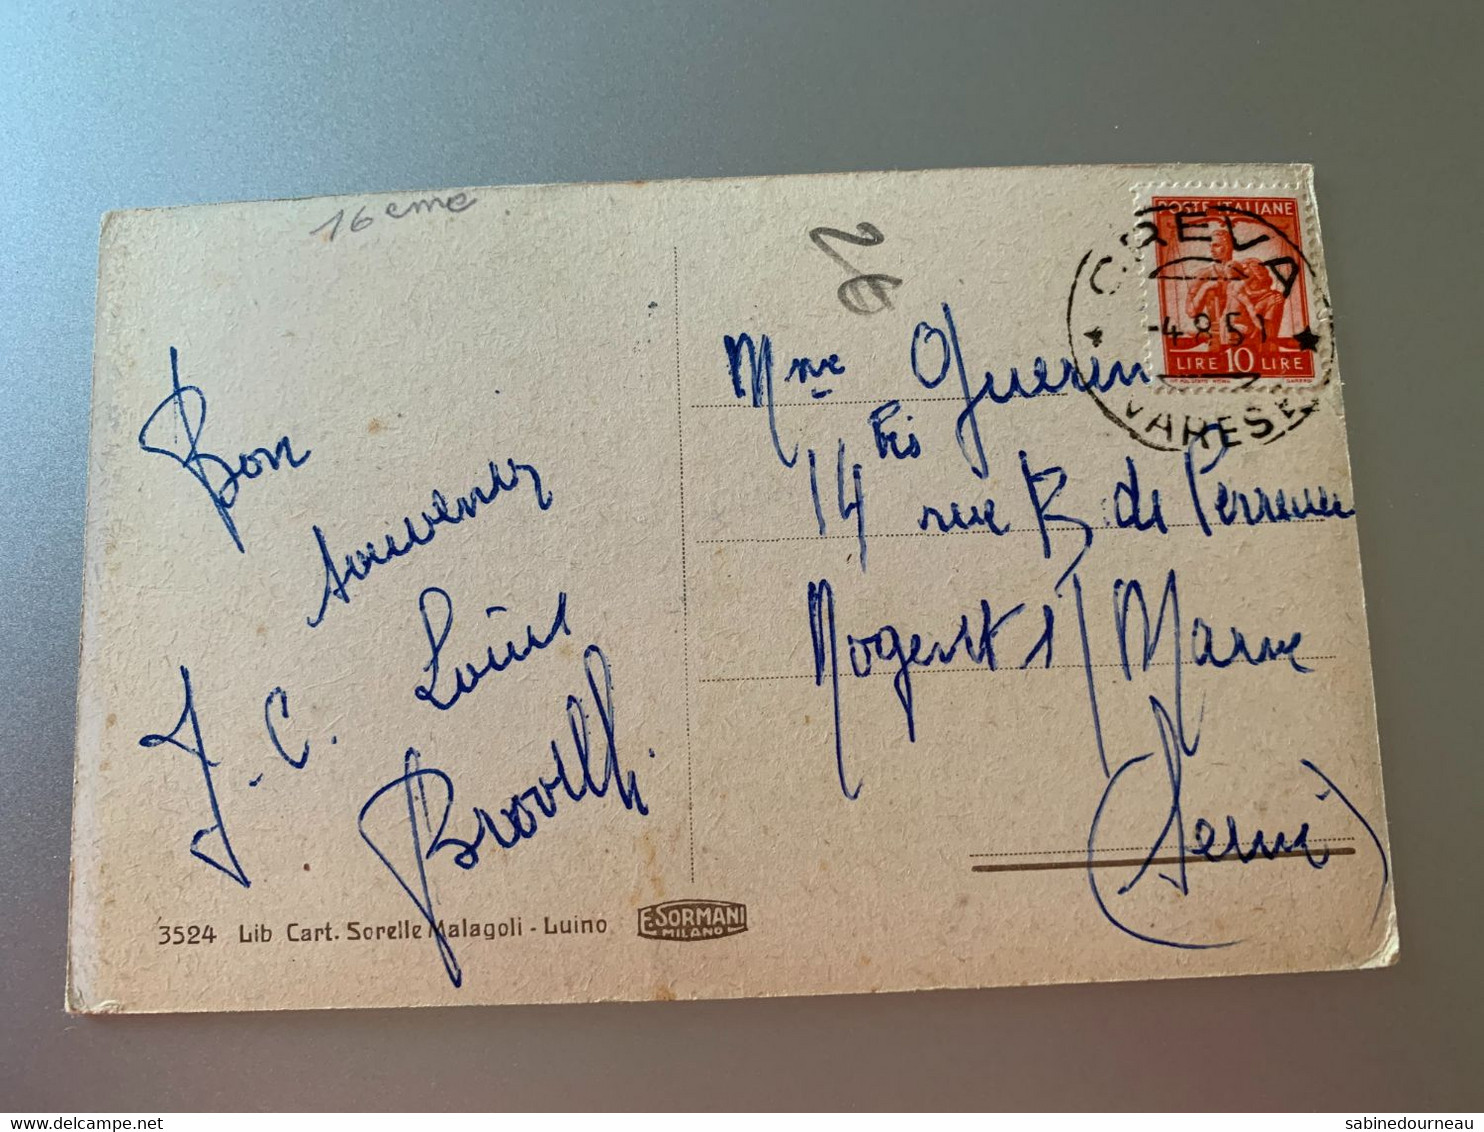 16 eme
26
POSTE ITALIANE
LIRE 10 LIRE
CREVA
-4.8.51
VARESE
Bon
souvenir
Louis
J. C. Brovelli
Mme Guerin
14 bis rue B. de
Nogent s/ Marne
(Seine)
3524 Lib Cart. Sorelle Malagoli - Luino
F. SORMANI
MILANO
sabinedourneau